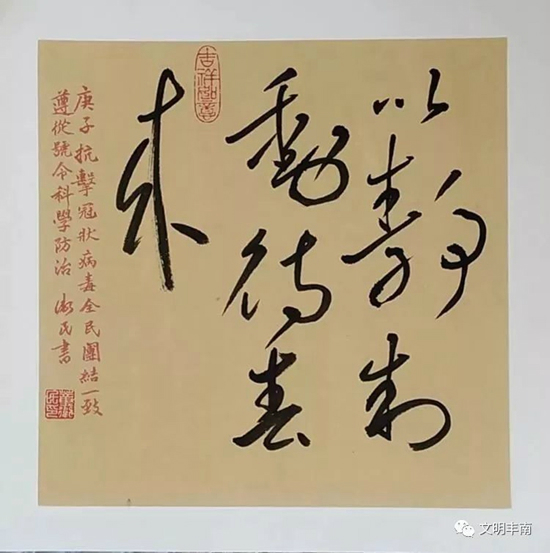 以静制
動待春
来
吉祥如意
庚子抗擊冠狀病毒全民團結一致
遵從號令科學防治 民書
文明丰南